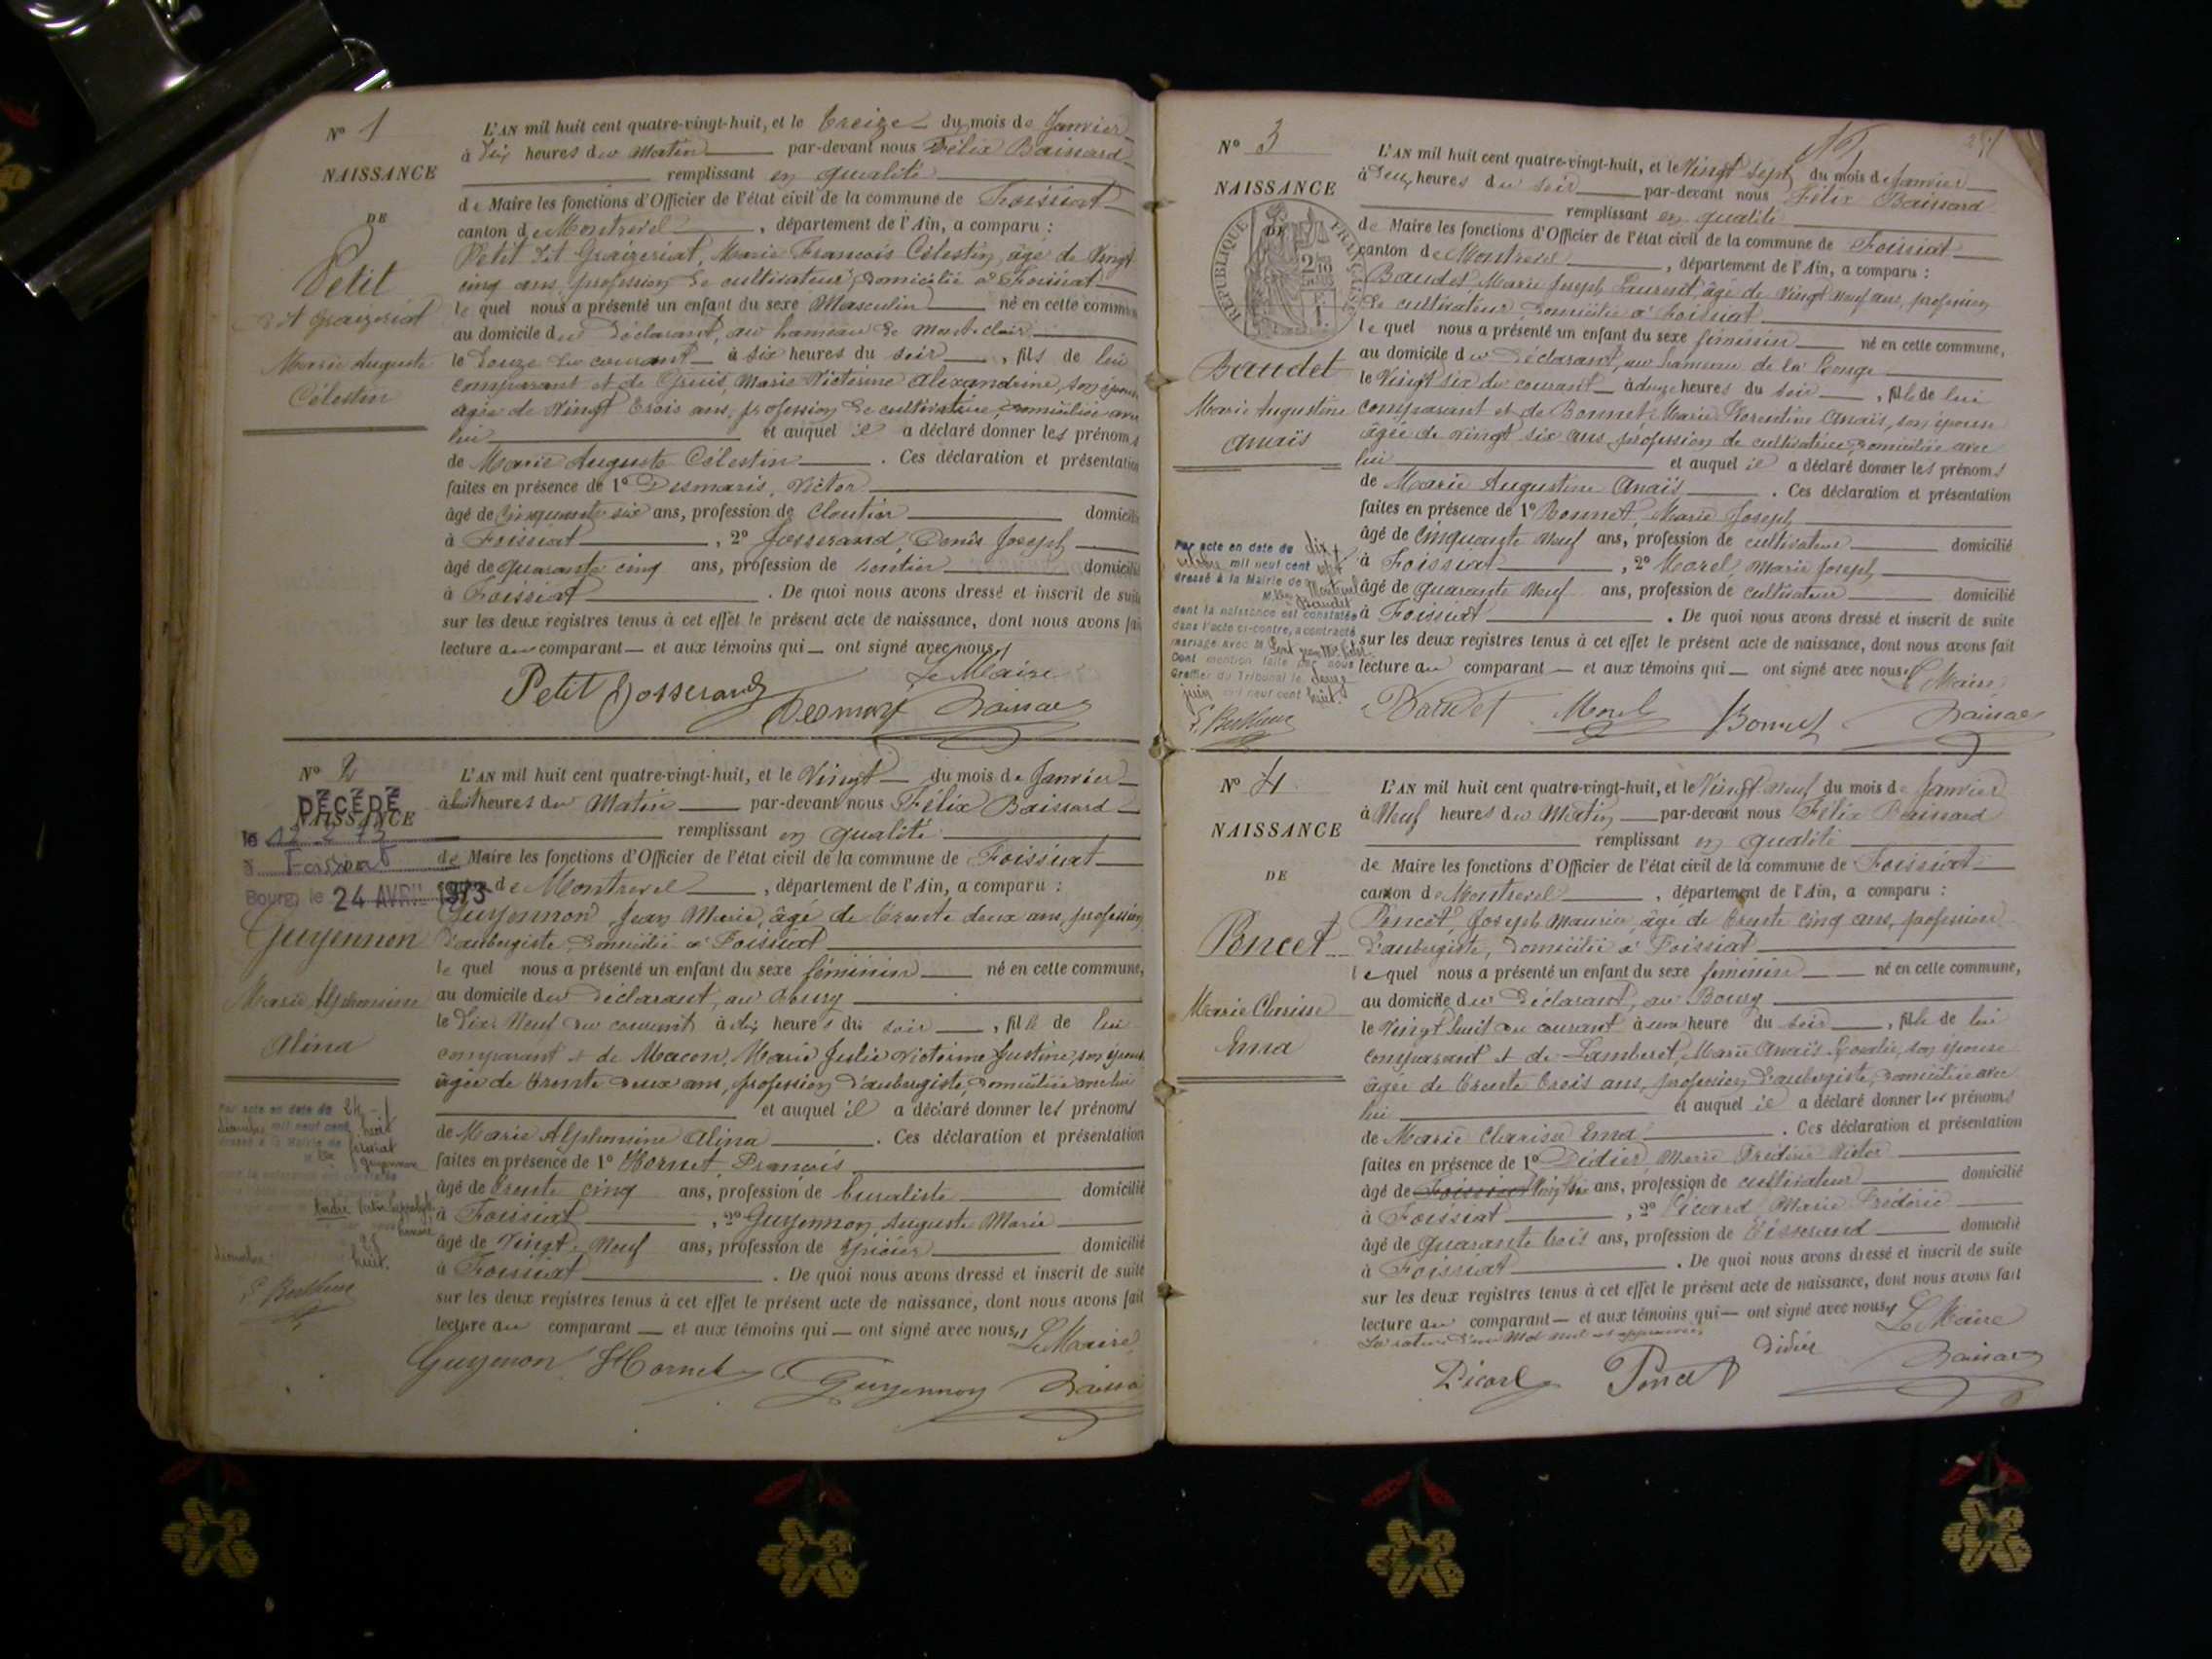 N° 1
NAISSANCE
DE
Petit
dit Graizeriat
Marie Auguste
Célestin
L'AN mil huit cent quatre-vingt-huit, et le treize du mois de Janvier
à dix heures du Matin par-devant nous Félix Baissard
remplissant en qualité
de Maire les fonctions d'Officier de l'état civil de la commune de Foissiat
canton de Montrevel, département de l'Ain, a comparu :
Petit dit Graizeriat, Marie François Célestin, âgé de vingt
cinq ans, profession de cultivateur, domicilié à Foissiat
le quel nous a présenté un enfant du sexe Masculin né en cette commune
au domicile du Déclarant, au hameau de Mont-clair
le douze du courant à six heures du soir, fils de lui
comparant et de Marie Victorine Alexandrine, son épouse
âgée de vingt trois ans, profession de cultivatrice domiciliée avec
lui et auquel il a déclaré donner les prénoms
de Marie Auguste Célestin. Ces déclaration et présentation
faites en présence de 1° Desmaris, Victor
âgé de Cinquante six ans, profession de Cloutier domicilié
à Foissiat, 2° Josserand, Denis Joseph
âgé de quarante cinq ans, profession de rentier domicilié
à Foissiat. De quoi nous avons dressé et inscrit de suite
sur les deux registres tenus à cet effet le présent acte de naissance, dont nous avons fait
lecture au comparant et aux témoins qui ont signé avec nous.
Le Maire
Petit Josserand
Desmaris Baissard
N° 2
NAISSANCE
DÉCÉDÉ
le 12 2 73
à Foissiat
Bourg, le 24 AVRIL 1973
Guyennon
Marie Alphonsine
Alina
L'AN mil huit cent quatre-vingt-huit, et le Vingt du mois de Janvier
à huit heures du Matin par-devant nous Félix Baissard
remplissant en qualité
de Maire les fonctions d'Officier de l'état civil de la commune de Foissiat
canton de Montrevel, département de l'Ain, a comparu :
Guyennon Jean Marie, âgé de trente deux ans, profession
d'aubergiste, domicilié à Foissiat
le quel nous a présenté un enfant du sexe féminin né en cette commune,
au domicile du Déclarant, au Bourg
le Dix Neuf du courant à dix heures du soir, fille de lui
comparant et de Macon, Marie Julie Victorine Justine, son épouse
âgée de trente deux ans, profession d'aubergiste, domiciliée avec lui
et auquel il a déclaré donner les prénoms
de Marie Alphonsine Alina. Ces déclaration et présentation
faites en présence de 1° Hornet, François
âgé de trente cinq ans, profession de buraliste domicilié
à Foissiat, 2° Guyennon Auguste Marie
âgé de Vingt Neuf ans, profession de épicier domicilié
à Foissiat. De quoi nous avons dressé et inscrit de suite
sur les deux registres tenus à cet effet le présent acte de naissance, dont nous avons fait
lecture au comparant et aux témoins qui ont signé avec nous,
Le Maire
Guyennon Hornet Guyennon Baissard
Par acte en date du 24
décembre mil neuf cent huit
dressé à la Mairie de Foissiat
Mlle Guyennon
décembre huit.
N° 3
NAISSANCE
DE
RÉPUBLIQUE FRANÇAISE
Baudet
Marie Augustine
Anaïs
L'AN mil huit cent quatre-vingt-huit, et le Vingt Sept du mois de Janvier
à deux heures du soir par-devant nous Félix Baissard
remplissant en qualité
de Maire les fonctions d'Officier de l'état civil de la commune de Foissiat
canton de Montrevel, département de l'Ain, a comparu :
Baudet, Marie Joseph Laurent, âgé de Vingt Neuf ans, profession
de cultivateur, domicilié à Foissiat
le quel nous a présenté un enfant du sexe féminin né en cette commune,
au domicile du Déclarant, au hameau de la
le Vingt six du courant à onze heures du soir, fille de lui
comparant et de Bonnet, Marie Florentine Anaïs, son épouse
âgée de vingt six ans, profession de cultivatrice, domiciliée avec
lui et auquel il a déclaré donner les prénoms
de Marie Augustine Anaïs. Ces déclaration et présentation
faites en présence de 1° Bonnet, Marie Joseph
âgé de cinquante Neuf ans, profession de cultivateur domicilié
à Foissiat, 2° Morel, Marie Joseph
âgé de quarante Neuf ans, profession de cultivateur domicilié
à Foissiat. De quoi nous avons dressé et inscrit de suite
sur les deux registres tenus à cet effet le présent acte de naissance, dont nous avons fait
lecture au comparant et aux témoins qui ont signé avec nous.
Le Maire
Baudet Morel Bonnet Baissard
Par acte en date du dix
mil neuf cent
dressé à la Mairie de Montrevel
Mlle Baudet
dont la naissance est constatée
dans l'acte ci-contre, a contracté
mariage avec M
Dont mention faite par nous
Greffier du Tribunal le douze
juin mil neuf cent huit.
N° 4
NAISSANCE
DE
Poncet
Marie Clarisse
Ema
L'AN mil huit cent quatre-vingt-huit, et le Vingt Neuf du mois de Janvier
à Neuf heures du Matin par-devant nous Félix Baissard
remplissant en qualité
de Maire les fonctions d'Officier de l'état civil de la commune de Foissiat
canton de Montrevel, département de l'Ain, a comparu :
Poncet, Joseph Maurice, âgé de trente cinq ans, profession
d'aubergiste, domicilié à Foissiat
le quel nous a présenté un enfant du sexe féminin né en cette commune,
au domicile du Déclarant, au Bourg
le Vingt huit du courant à une heure du soir, fille de lui
comparant et de Lamberet, Marie Anaïs Rosalie, son épouse
âgée de trente trois ans, profession d'aubergiste, domiciliée avec
lui et auquel il a déclaré donner les prénoms
de Marie Clarisse Ema. Ces déclaration et présentation
faites en présence de 1° Didier, Marie Frédéric Victor
âgé de Foissiat Vingt six ans, profession de cultivateur domicilié
à Foissiat, 2° Picard Marie Frédéric
âgé de quarante trois ans, profession de Tisserand domicilié
à Foissiat. De quoi nous avons dressé et inscrit de suite
sur les deux registres tenus à cet effet le présent acte de naissance, dont nous avons fait
lecture au comparant et aux témoins qui ont signé avec nous,
La rature d'un Mot nul est approuvée,
Le Maire
Picard Poncet Didier Baissard